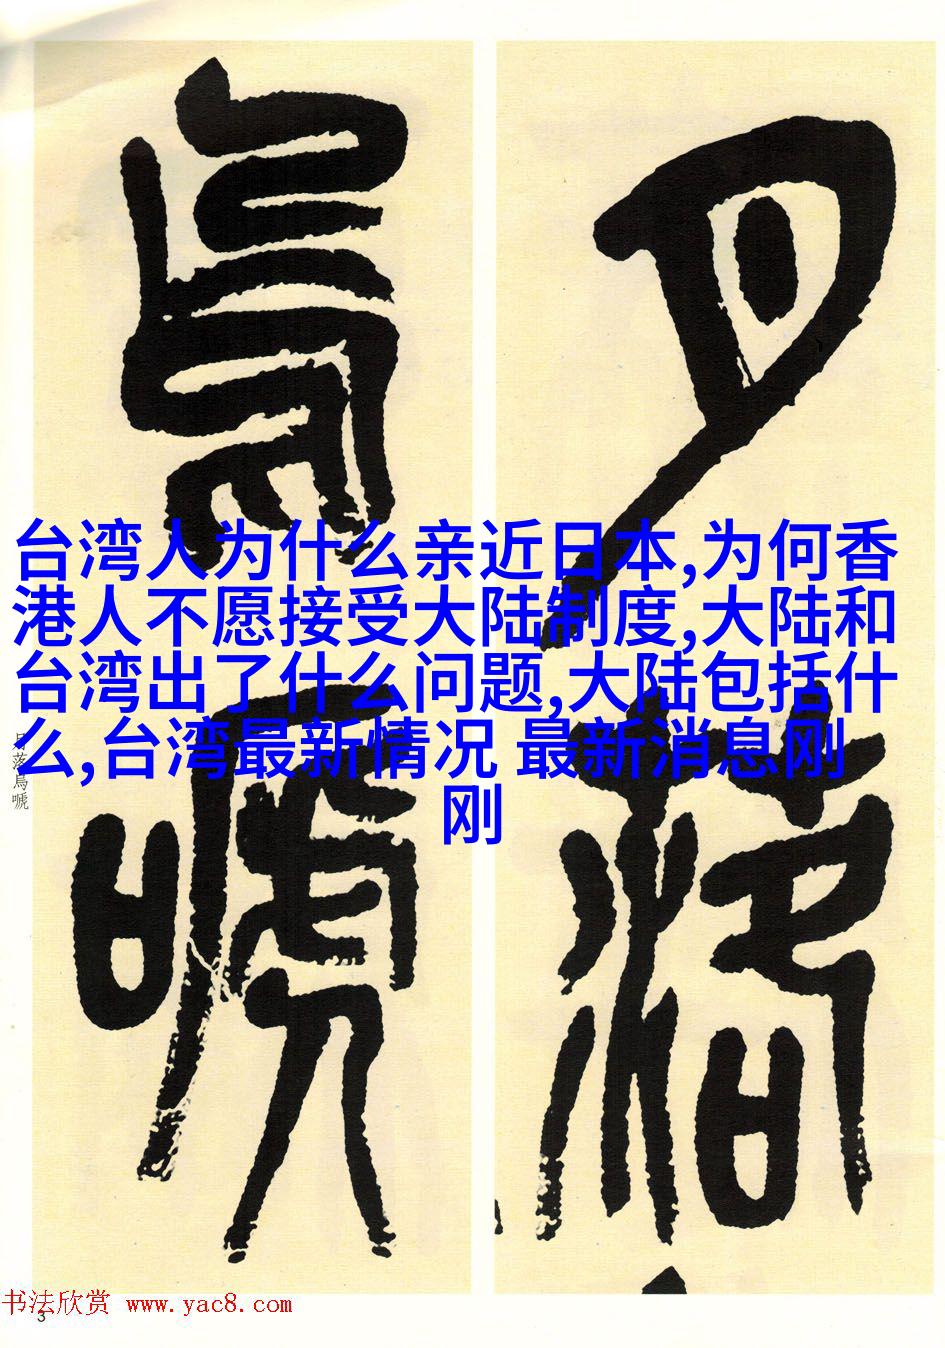 月落
烏嗁
台湾人为什么亲近日本,为何香
港人不愿接受大陆制度,大陆和
台湾出了什么问题,大陆包括什
么,台湾最新情况 最新消息刚
刚
月落烏嗁
书法欣赏 www.yac8.com
3